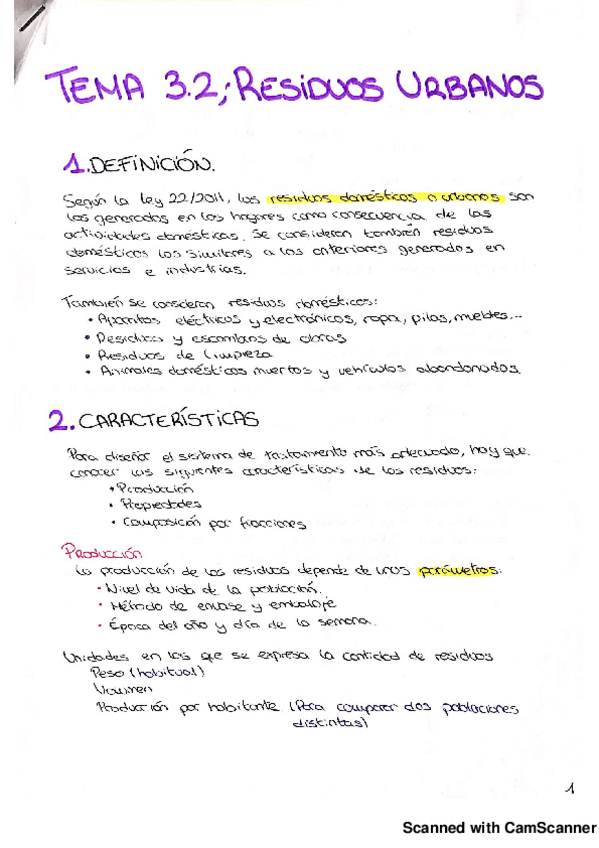 TEMA 3.2; RESIDUOS URBANOS
1. DEFINICIÓN.
Según la Ley 22/2011, los residuos domésticos o urbanos son
los generados en los hogares como consecuencia de las
actividades domésticas. Se consideran también residuos
domésticos los similares a los anteriores generados en
servicios e industrias.
También se consideran residuos domésticos:
• Aparatos eléctricos y electrónicos, ropa, pilas, muebles...
• Residuos y escombros de obras
• Residuos de limpieza
• Animales domésticos muertos y vehículos abandonados.
2. CARACTERÍSTICAS
Para diseñar el sistema de tratamiento más adecuado, hay que
conocer las siguientes características de los residuos:
• Producción
• Propiedades
• Composición por fracciones
Producción
La producción de los residuos depende de unos parámetros:
• Nivel de vida de la población.
• Método de envase y embalaje
• Época del año y día de la semana.
Unidades en las que se expresa la cantidad de residuos
Peso (habitual)
Volumen
Producción por habitante (Para comparar dos poblaciones
distintas)
1
Scanned with CamScanner